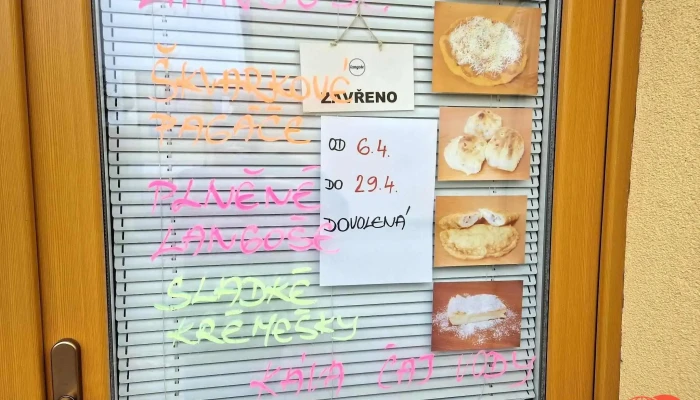 ZAVŘENO
OD 6.4.
DO 29.4.
DOVOLENÁ
ŠKVARKOVÉ
PAGÁČE
PLNĚNÉ
LANGOŠE
SLADKÉ
KRÉMEŠKY
KÁVA ČAJ VODY